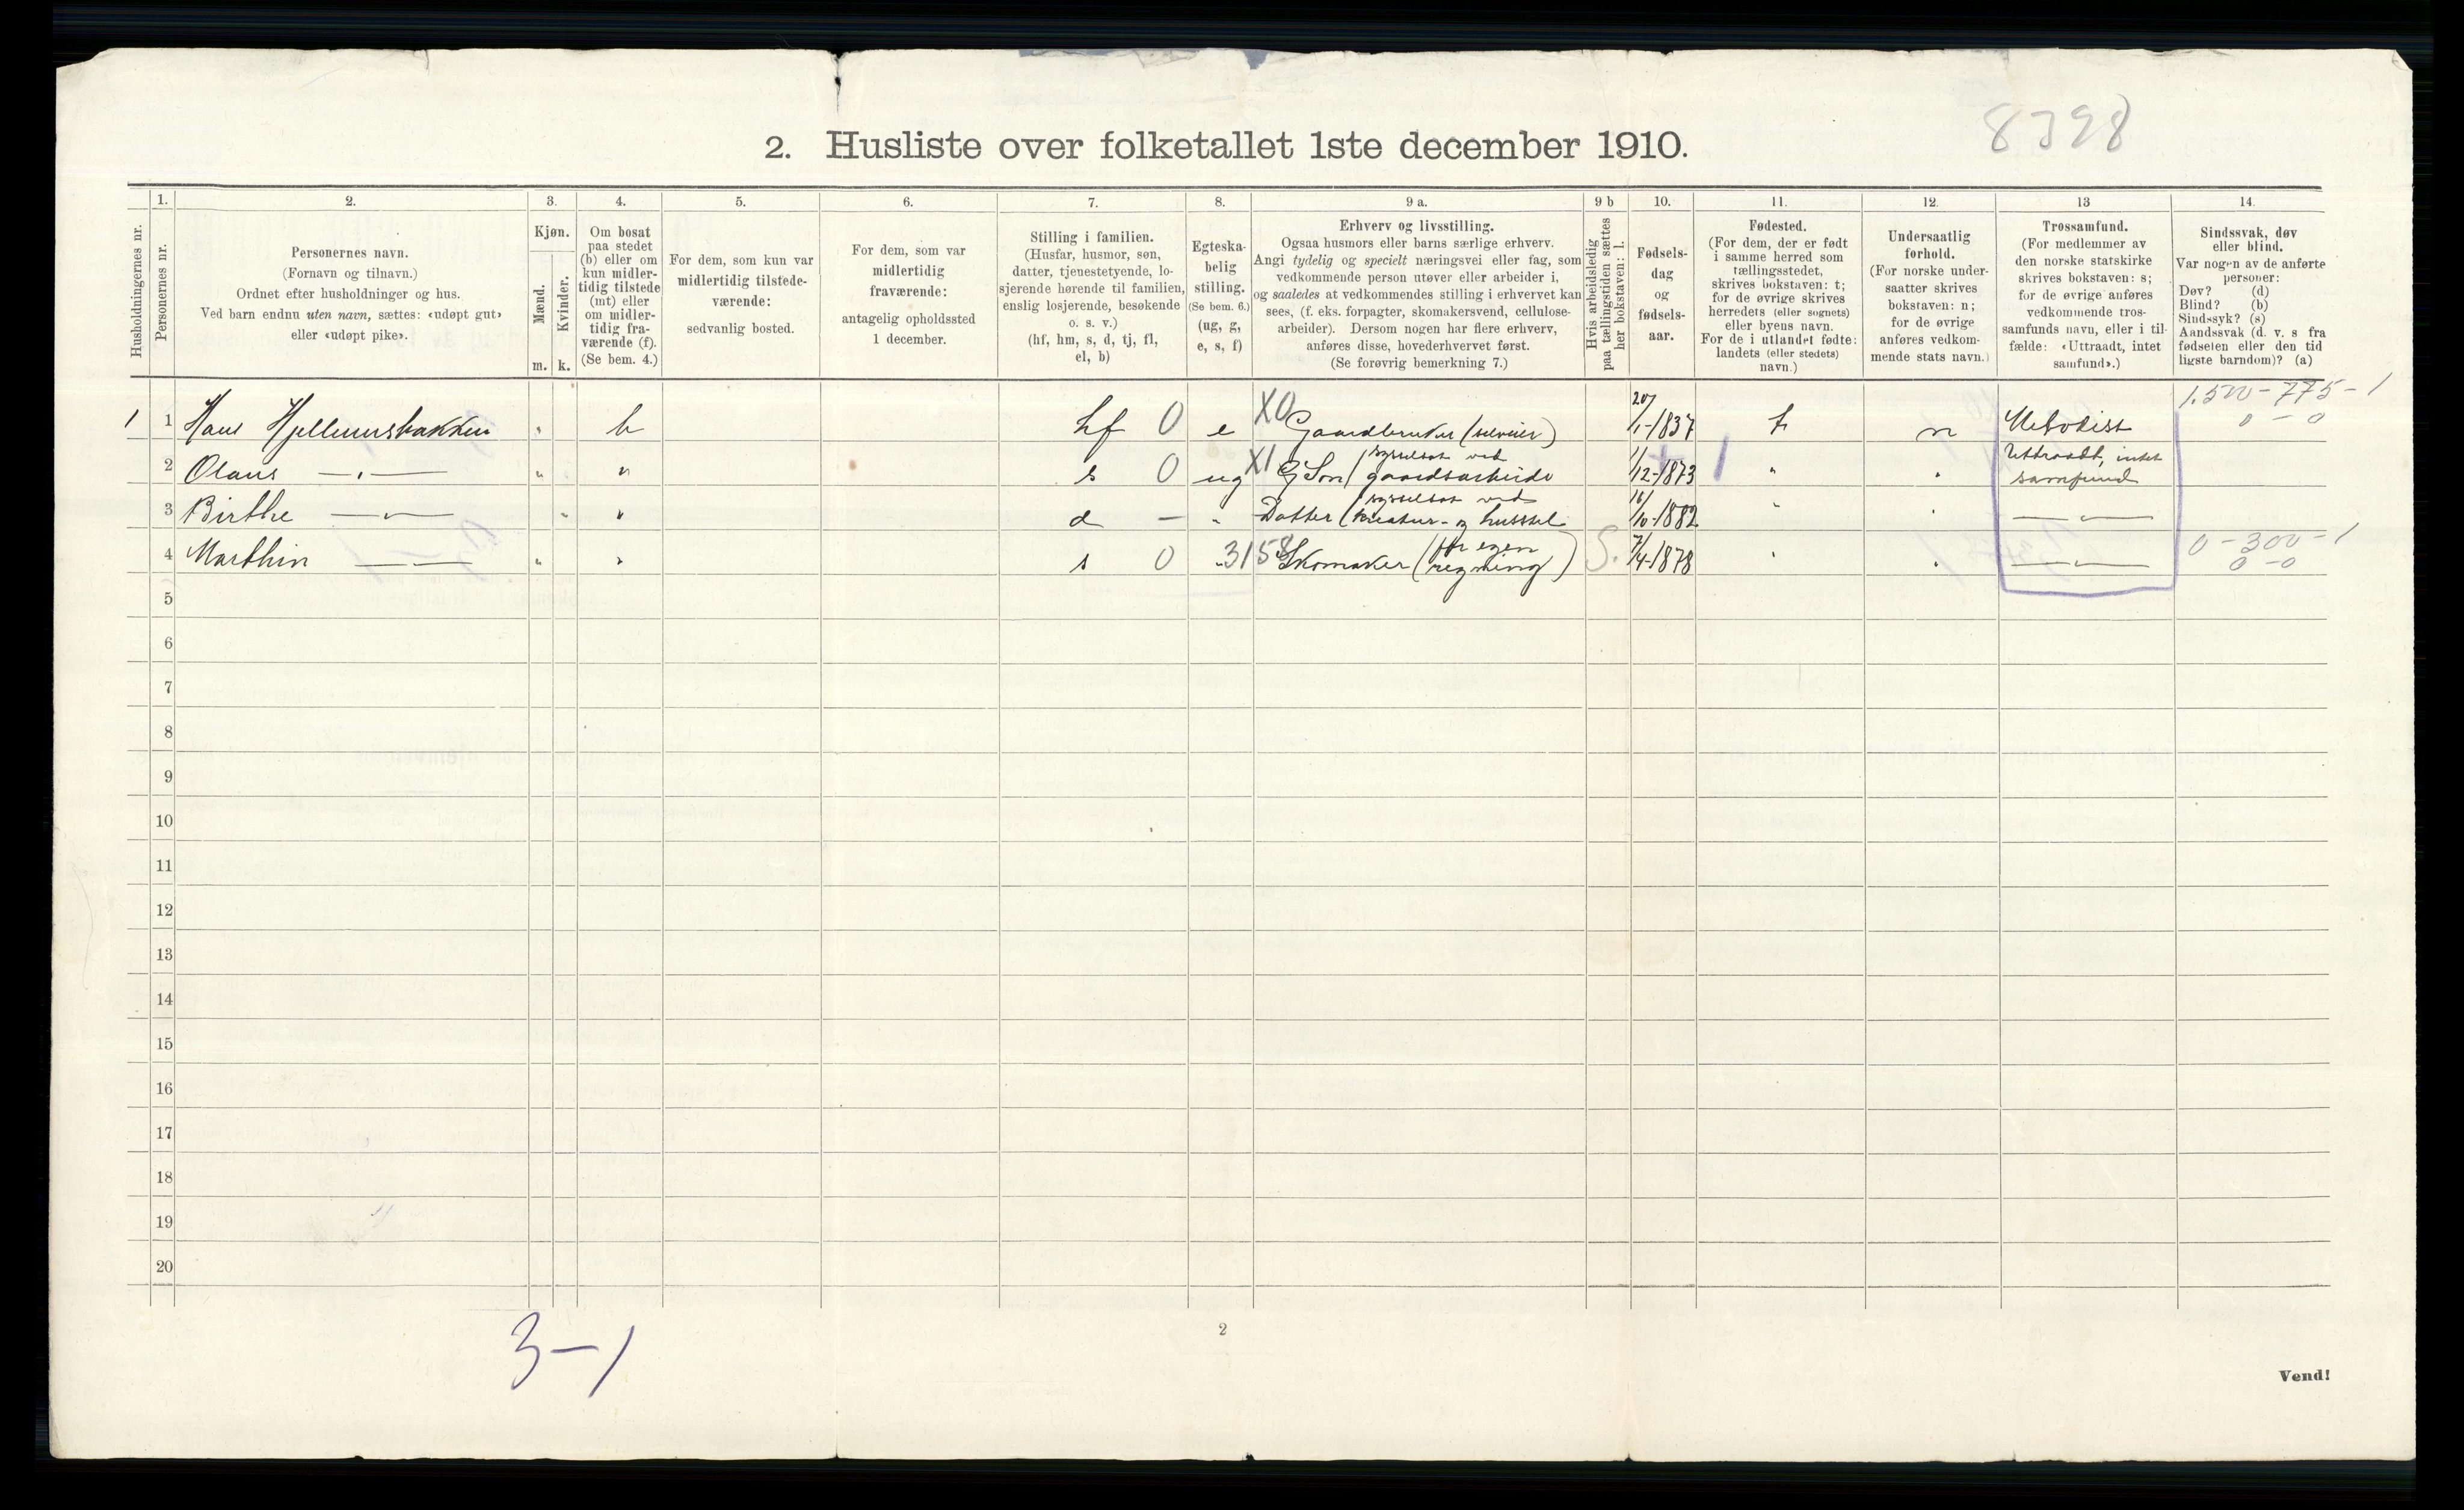 8398
2. Husliste over folketallet 1ste december 1910.
Husholdningernes nr.
1.
Personernes nr.
2.
Personernes navn.
(Fornavn og tilnavn.)
Ordnet efter husholdninger og hus.
Ved barn endnu uten navn, sættes: «udøpt gut»
eller «udøpt pike».
3.
Kjøn.
Mænd.
Kvinder.
m. k.
4.
Om bosat
paa stedet
(b) eller om
kun midler-
tidig tilstede
(mt) eller
om midler-
tidig fra-
værende (f).
(Se bem. 4.)
5.
For dem, som kun var
midlertidig tilstede-
værende:
sedvanlig bosted.
6.
For dem, som var
midlertidig
fraværende:
antagelig opholdssted
1 december.
7.
Stilling i familien.
(Husfar, husmor, søn,
datter, tjenestetyende, lo-
sjerende hørende til familien,
enslig losjerende, besøkende
o. s. v.)
(hf, hm, s, d, tj, fl,
el, b)
8.
Egteska-
belig
stilling.
(Se bem. 6.)
(ug, g,
e, s, f)
9 a.
Erhverv og livsstilling.
Ogsaa husmors eller barns særlige erhverv.
Angi tydelig og specielt næringsvei eller fag, som
vedkommende person utøver eller arbeider i,
og saaledes at vedkommendes stilling i erhvervet kan
sees, (f. eks. forpagter, skomakersvend, cellulose-
arbeider). Dersom nogen har flere erhverv,
anføres disse, hovederhvervet først.
(Se forøvrig bemerkning 7.)
9 b
Hvis arbeidsledig
paa tællingstiden sættes
her bokstaven: l.
10.
Fødsels-
dag
og
fødsels-
aar.
11.
Fødested.
(For dem, der er født
i samme herred som
tællingsstedet,
skrives bokstaven: t;
for de øvrige skrives
herredets (eller sognets)
eller byens navn.
For de i utlandet fødte:
landets (eller stedets)
navn.)
12.
Undersaatlig
forhold.
(For norske under-
saatter skrives
bokstaven: n;
for de øvrige
anføres vedkom-
mende stats navn.)
13
Trossamfund.
(For medlemmer av
den norske statskirke
skrives bokstaven: s;
for de øvrige anføres
vedkommende tros-
samfunds navn, eller i til-
fælde: «Uttraadt, intet
samfund».)
14.
Sindssvak, døv
eller blind.
Var nogen av de anførte
personer:
Døv? (d)
Blind? (b)
Sindssyk? (s)
Aandssvak (d. v. s fra
fødselen eller den tid
ligste barndom)? (a)
1.500-775-1
0-0
1 1 Hans Hjellumsbakken " b hf 0 e X0 Gaardbruker (selveier) 20/1-1837 t n Metodist
2 Olaus —"— " " s 0 ug X1 G Søn (sysselsat ved gaardsarbeide 11/12-1873 " " Uttraadt, intet samfund
3 Birthe —"— " " d — " Datter (sysselsat ved kreatur- og husstel 16/10-1882 " " —"—
4 Marthin —"— " " s 0 " 3158 Skomaker (for egen regning) S. 7/4-1878 " " —"— 0-300-1
0-0
5
6
7
8
9
10
11
12
13
14
15
16
17
18
19
20
3-1
2
Vend!